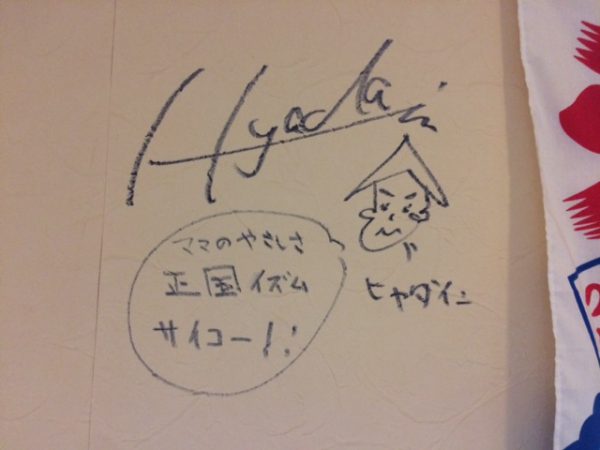 Hyadain
ママのやさしさ
正国イズム
サイコー!!
ヒャダイン